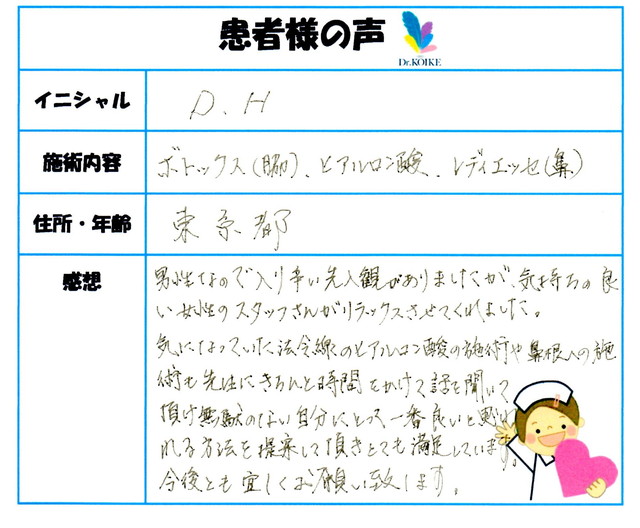 患者様の声
Dr.KOIKE
イニシャル D.H
施術内容 ボトックス(脇)、ヒアルロン酸、レディエッセ(鼻)
住所・年齢 東京都
感想
男性なので入り辛い先入観がありましたが、気持ちの良
い女性のスタッフさんがリラックスさせてくれました。
気になっていた法令線のヒアルロン酸の施術や鼻根への施
術も先生にきちんと時間をかけて話を聞いて
頂け無駄のない自分にとって一番良いと思わ
れる方法を提案して頂きとても満足しています。
今後とも宜しくお願い致します。